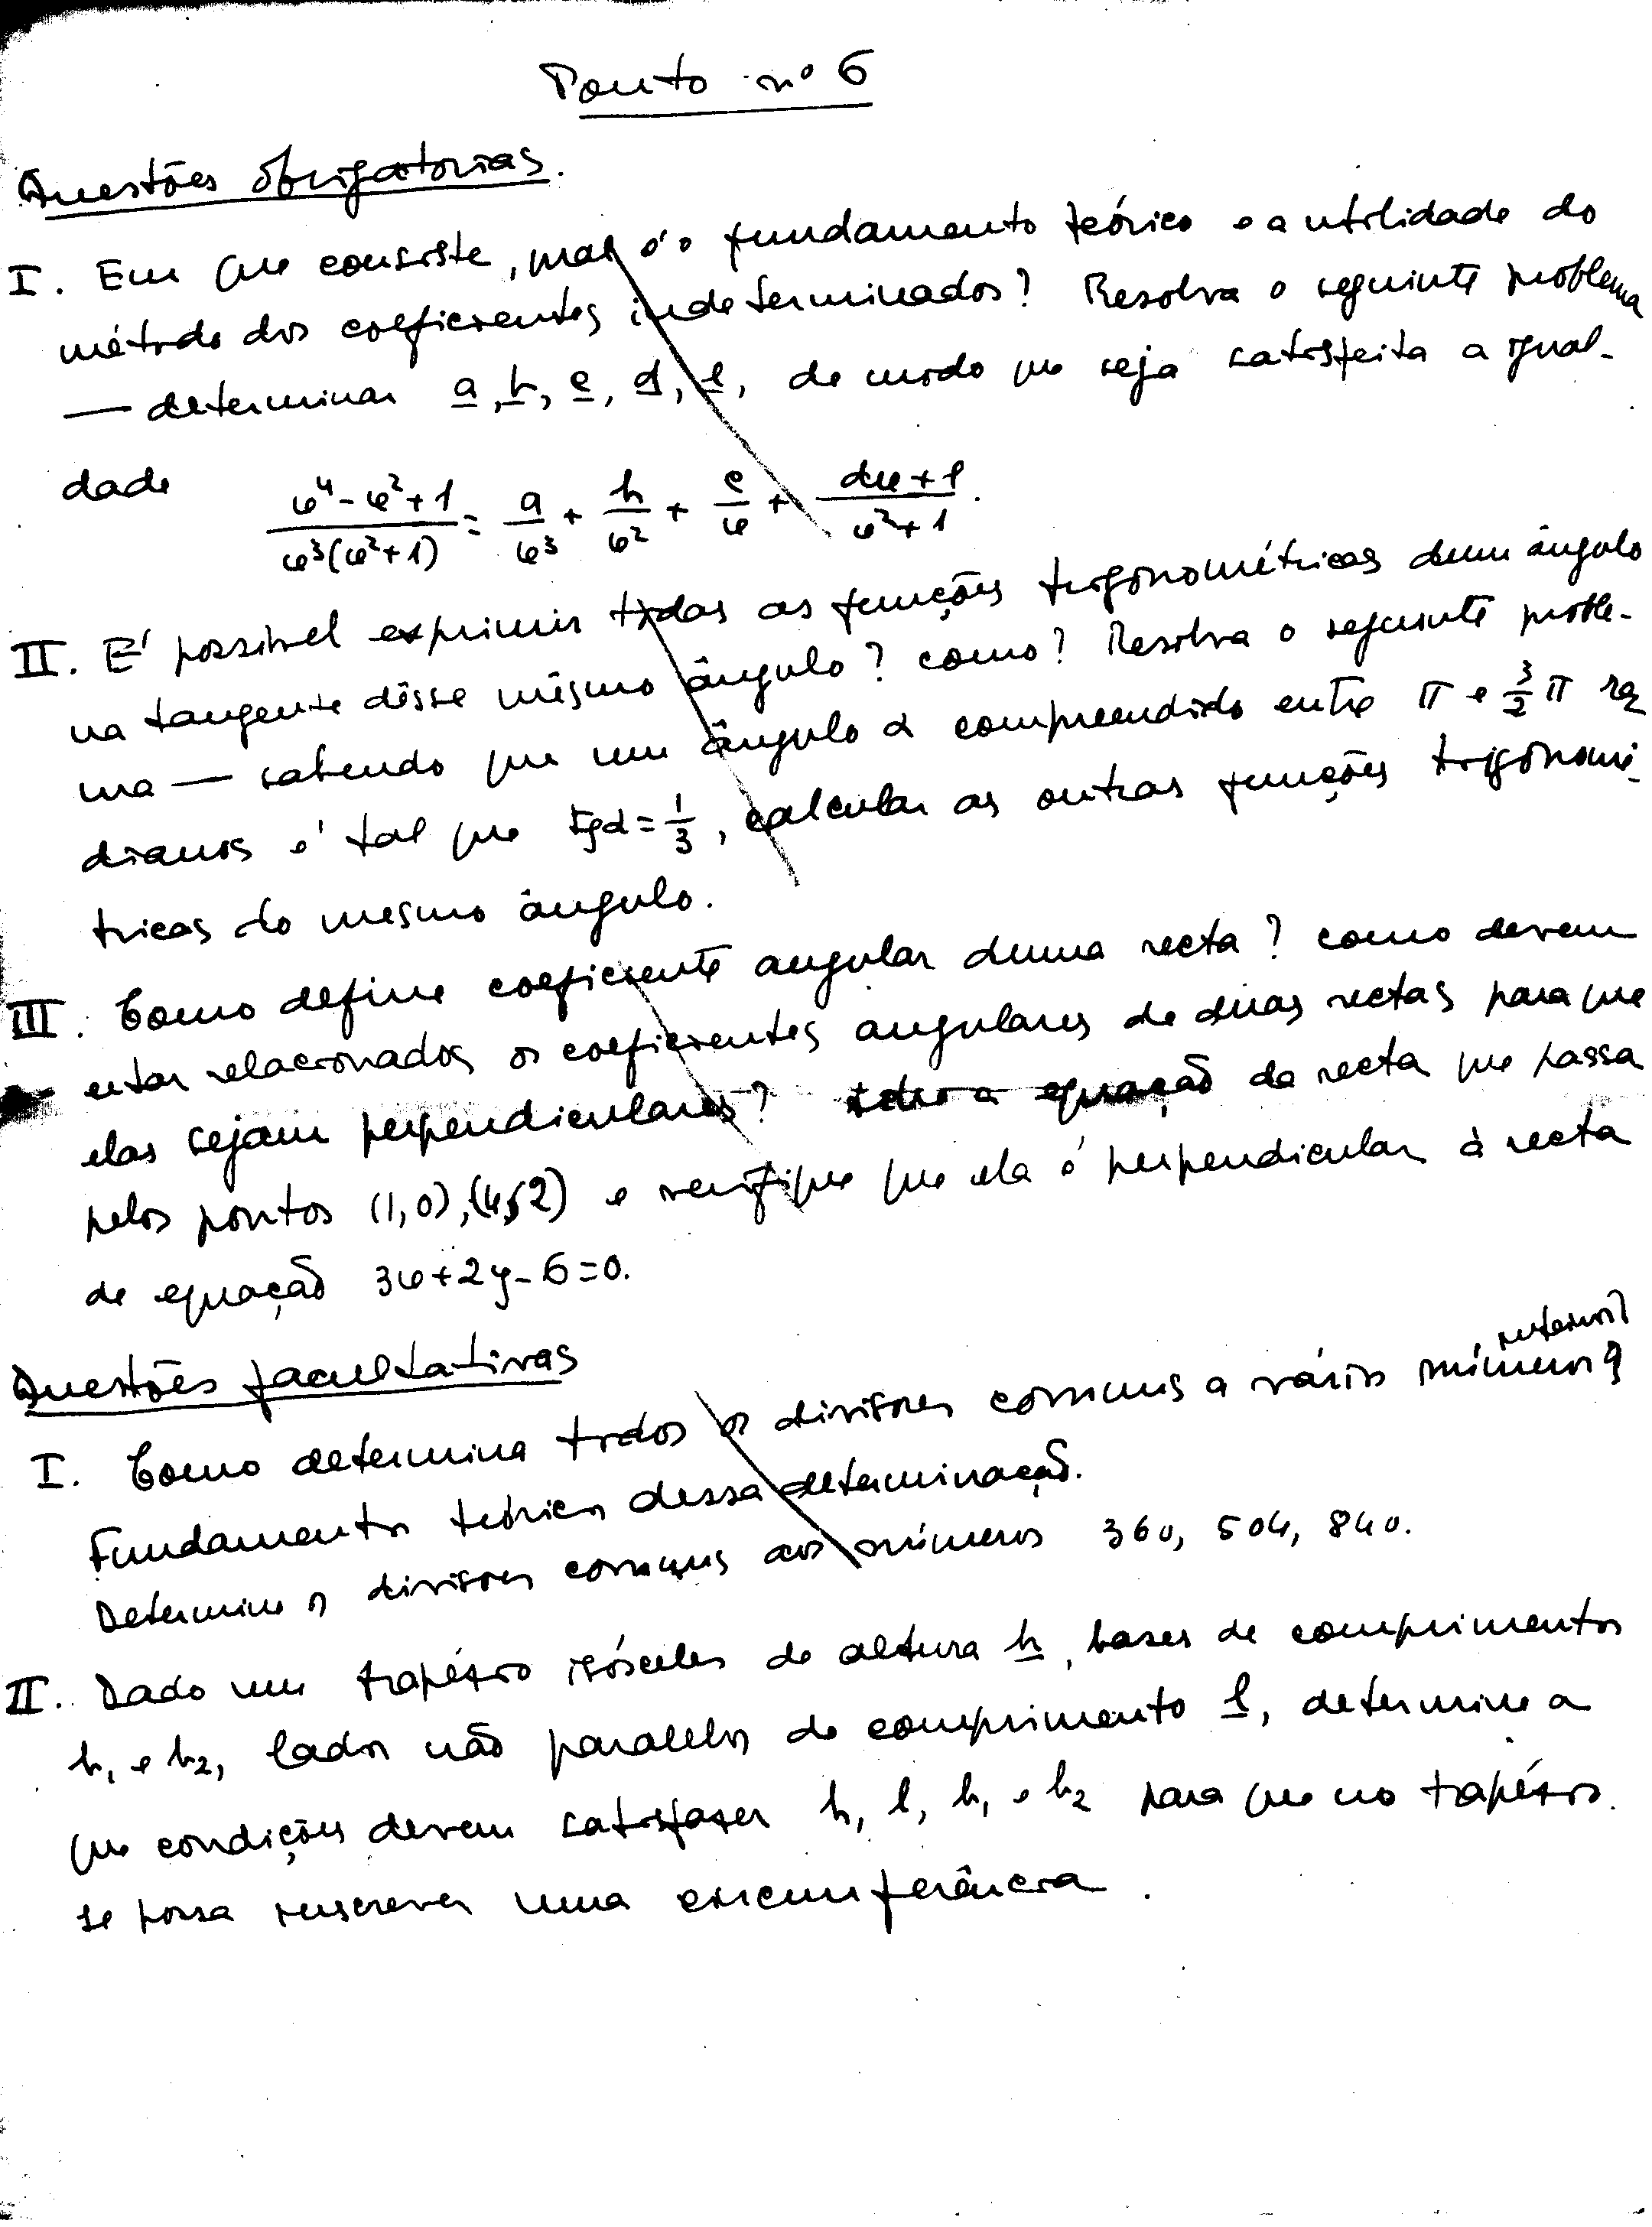 Ponto nº 6
Questões obrigatorias.
I. Em que consiste, qual é o fundamento teórico e a utilidade do
método dos coeficientes indeterminados? Resolva o seguinte problema
— determinar a, b, c, d, e, de modo que seja satisfeita a igual-
dade x⁴-x²+1/x³(x²+1) = a/x³ + b/x² + c/x + dx+e/x²+1.
II. E' possivel exprimir todas as funções trigonométricas dum ângulo
na tangente dêsse mesmo ângulo? como? Resolva o seguinte proble-
ma — sabendo que um ângulo α compreendido entre π e 3/2 π ra
dianos é tal que tgα = 1/3, calcular as outras funções trigonomé-
tricas do mesmo ângulo.
III. Como define coeficiente angular duma recta? como devem
estar relacionados os coeficientes angulares de duas rectas para que
elas sejam perpendiculares? a equação da recta que passa
pelos pontos (1,0), (4,2) e verifique que ela é perpendicular à recta
de equação 3x+2y-6=0.
Questões facultativas
inteiros?
I. Como determina todos os divisores comuns a vários números?
Fundamento teórico dessa determinação.
Determine os divisores comuns aos números 360, 504, 840.
II. Dado um trapézio isósceles de altura h, bases de comprimentos
b₁ e b₂, lados não paralelos de comprimento l, determine a
que condições devem satisfazer h, l, b₁ e b₂ para que no trapézio
se possa inscrever uma circunferência.